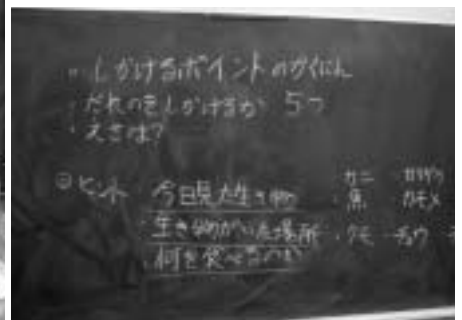 ・しかけるポイントのかくにん
・だれのをしかけるか 5つ
・えさは?
ヒント 今日見た生き物
生き物がいた場所
何を食べるのか
カニ
魚 カモメ
クモ チョウ